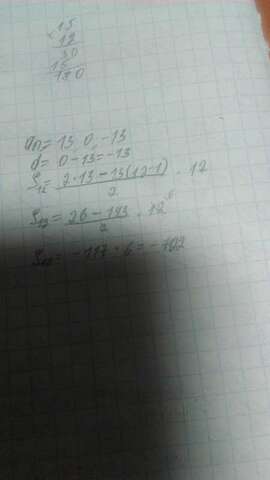 15
12
30
15
180
an= 13, 0, -13
d= 0-13=-13
S12= 2·13-13(12-1) / 2 · 12
= 26-143 / 2 · 12 6
= -117 · 6 = -702